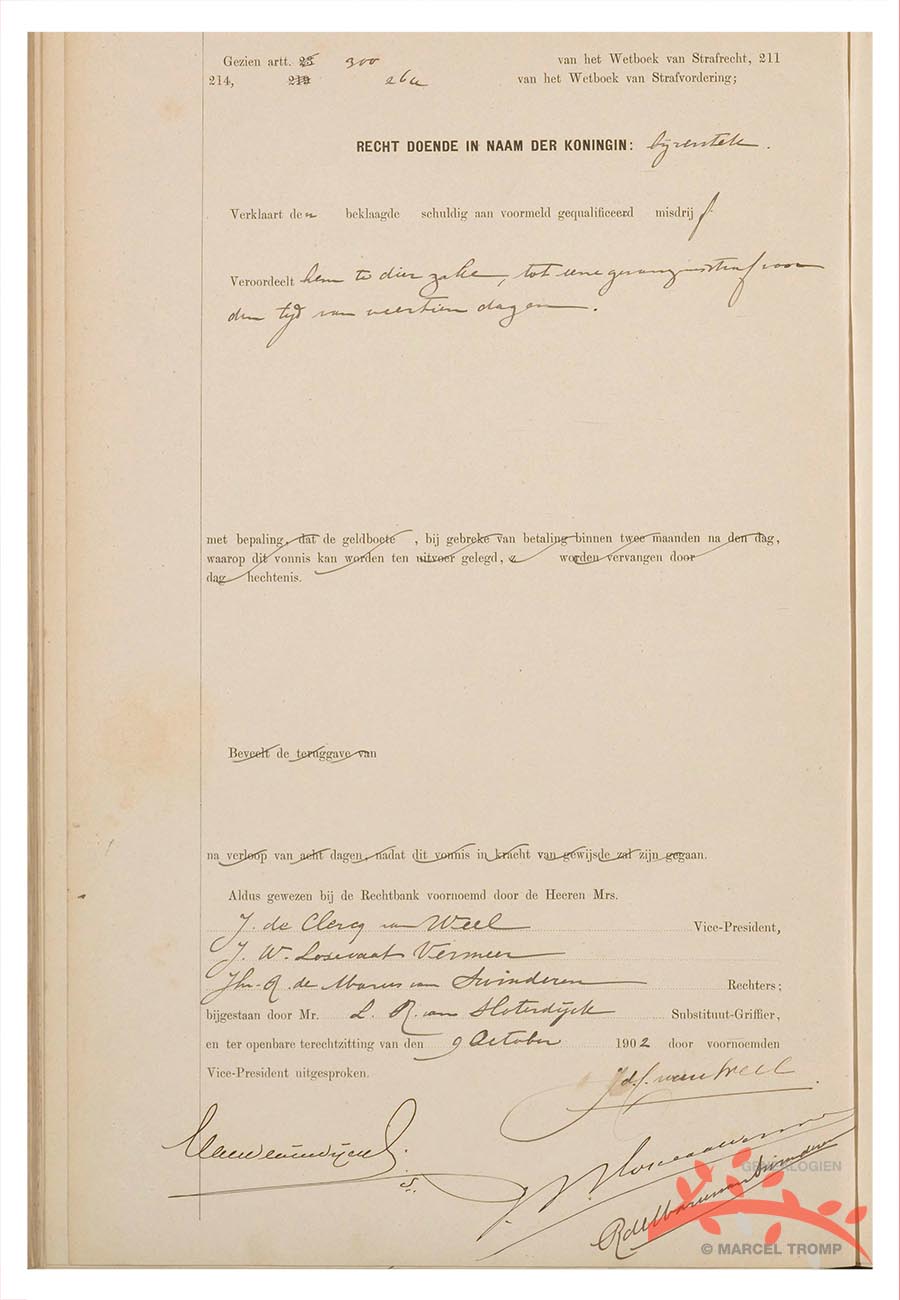 Gezien artt. 23 300 van het Wetboek van Strafrecht, 211
214, van het Wetboek van Strafvordering;
RECHT DOENDE IN NAAM DER KONINGIN: bij verstek.
Verklaart den beklaagde schuldig aan voormeld gequalificeerd misdrijf
Veroordeelt hem te dier zake, tot eene gevangenisstraf voor
den tijd van veertien dagen.
met bepaling, dat de geldboete , bij gebreke van betaling binnen twee maanden na den dag,
waarop dit vonnis kan worden ten uitvoer gelegd, z worden vervangen door
dag hechtenis.
Beveelt de teruggave van
na verloop van acht dagen, nadat dit vonnis in kracht van gewijsde zal zijn gegaan.
Aldus gewezen bij de Rechtbank voornoemd door de Heeren Mrs.
J. de Clercq van Weel Vice-President,
J. W. Losecaat Vermeer
Jhr. R. de Marees van Swinderen Rechters;
bijgestaan door Mr. L. R. van Sloterdijck Substituut-Griffier,
en ter openbare terechtzitting van den 9 October 1902 door voornoemden
Vice-President uitgesproken.
GENEALOGIEN
© MARCEL TROMP